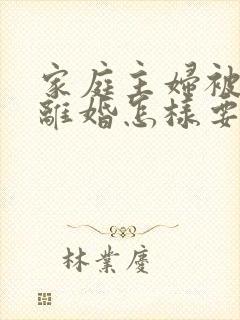 家庭主婦被
離婚怎樣要
林業慶